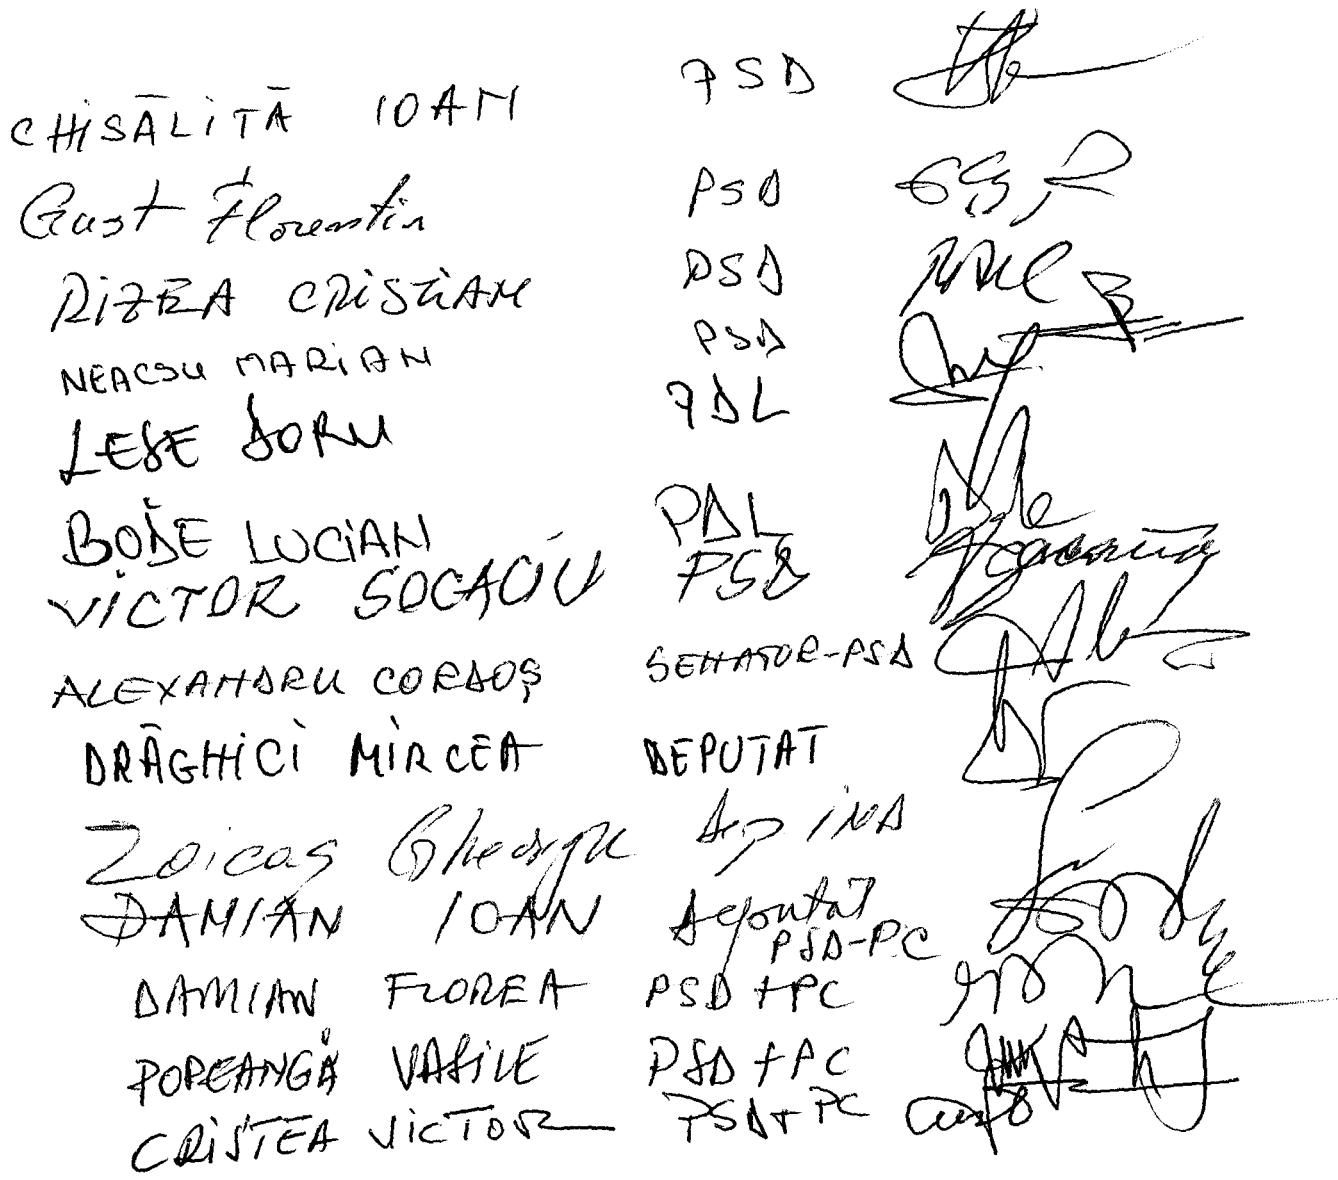 CHISĂLIȚĂ IOAN PSD
Gust Florentin PSD
RIZEA CRISTIAN PSD
NEACSU MARIAN PSD
LESE DORU PDL
BODE LUCIAN PDL
VICTOR SOCACIU PSD
ALEXANDRU CORDOȘ SENATOR-PSD
DRĂGHICI MIRCEA DEPUTAT
Zoicaș Gheorghe
DAMIAN IOAN Deputat
PSD-PC
DAMIAN FLOREA PSD+PC
POPEANGĂ VASILE PSD+PC
CRISTEA VICTOR PSD+PC